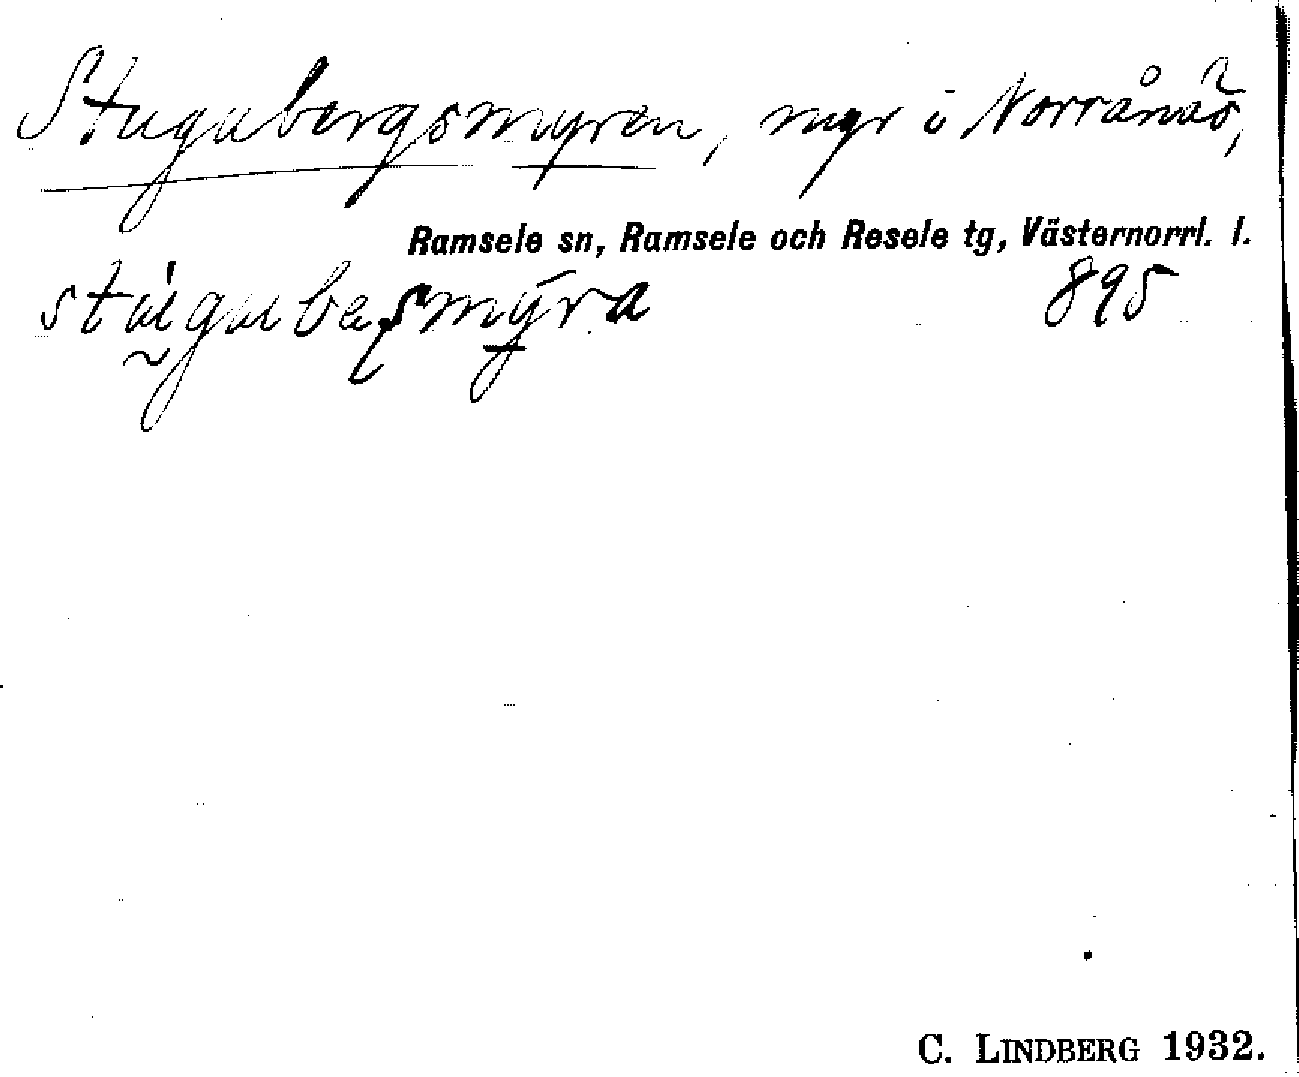 Stugubergsmyren, myr i Norrånäs,
Ramsele sn, Ramsele och Resele tg, Västernorrl. l.
895
C. LINDBERG 1932.